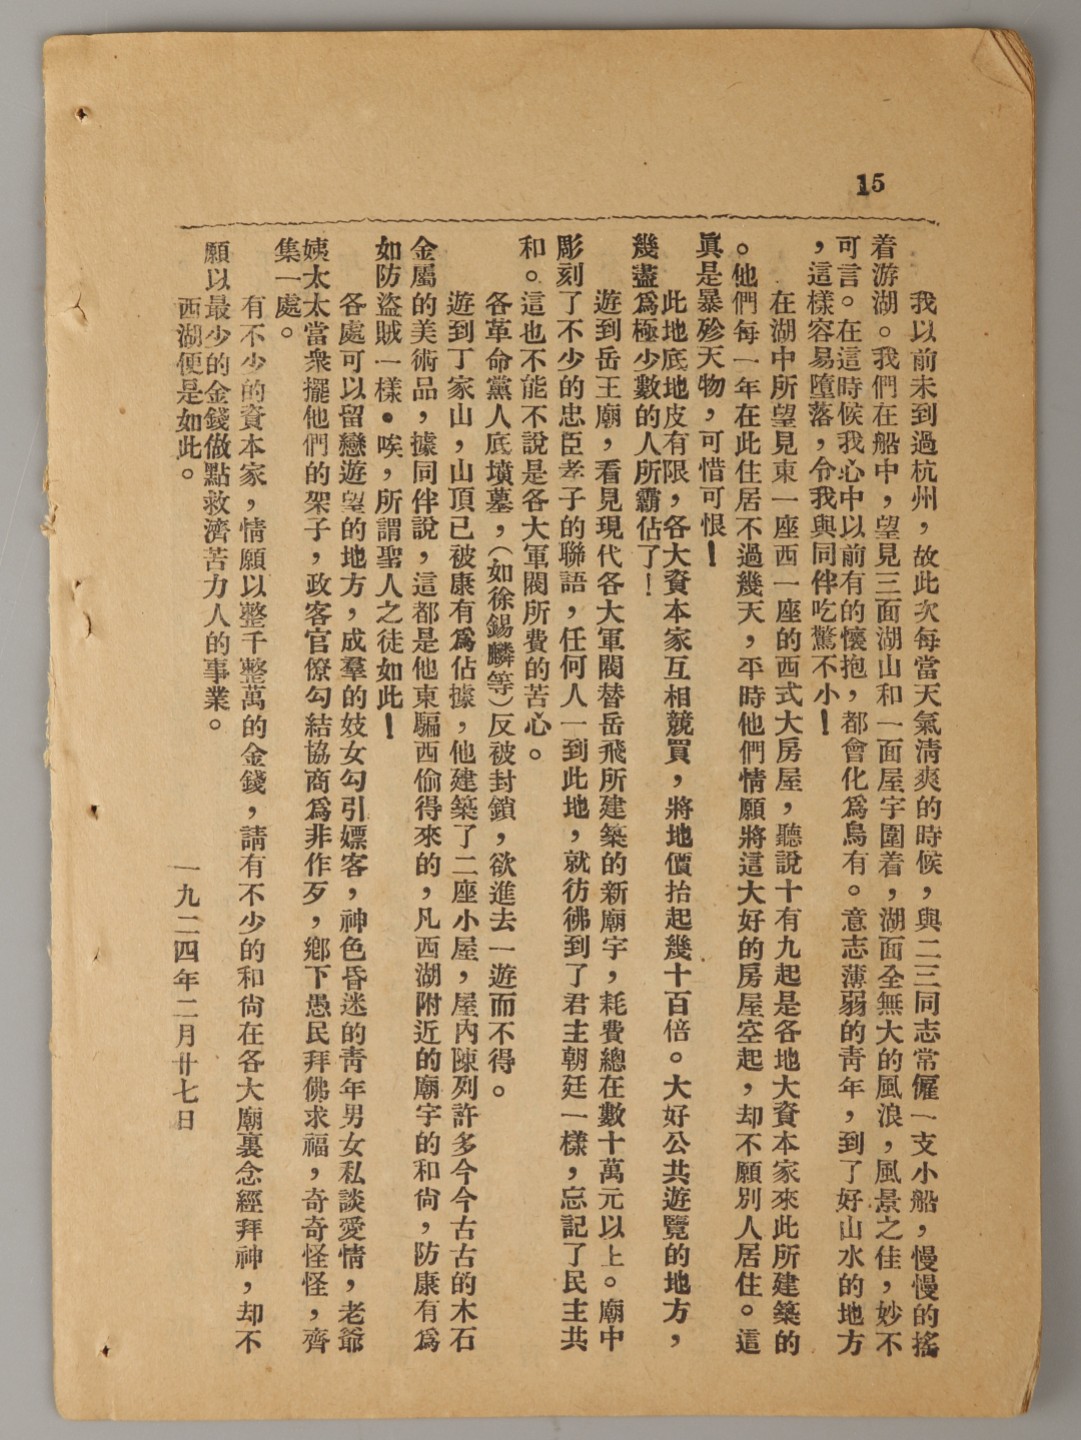 15
我以前未到過杭州，故此次每當天氣清爽的時候，與二三同志常僱一支小船，慢慢的搖
着游湖。我們在船中，望見三面湖山和一面屋宇圍着，湖面全無大的風浪，風景之佳，妙不
可言。在這時候我心中以前有的懷抱，都會化爲烏有。意志薄弱的靑年，到了好山水的地方
，這樣容易墮落，令我與同伴吃驚不小！
在湖中所望見東一座西一座的西式大房屋，聽說十有九起是各地大資本家來此所建築的
。他們每一年在此住居不過幾天，平時他們情願將這大好的房屋空起，却不願別人居住。這
眞是暴殄天物，可惜可恨！
此地底地皮有限，各大資本家互相競買，將地價抬起幾十百倍。大好公共遊覽的地方，
幾盡爲極少數的人所霸佔了！
遊到岳王廟，看見現代各大軍閥替岳飛所建築的新廟宇，耗費總在數十萬元以上。廟中
彫刻了不少的忠臣孝子的聯語，任何人一到此地，就彷彿到了君主朝廷一樣，忘記了民主共
和。這也不能不說是各大軍閥所費的苦心。
各革命黨人底墳墓，（如徐錫麟等）反被封鎖，欲進去一遊而不得。
遊到丁家山，山頂已被康有爲佔據，他建築了二座小屋，屋內陳列許多今今古古的木石
金屬的美術品，據同伴說，這都是他東騙西偷得來的，凡西湖附近的廟宇的和尙，防康有爲
如防盜賊一樣。唉，所謂聖人之徒如此！
各處可以留戀遊望的地方，成羣的妓女勾引嫖客，神色昏迷的靑年男女私談愛情，老爺
姨太太當衆擺他們的架子，政客官僚勾結協商爲非作歹，鄉下愚民拜佛求福，奇奇怪怪，齊
集一處。
有不少的資本家，情願以整千整萬的金錢，請有不少的和尙在各大廟裏念經拜神，却不
願以最少的金錢做點救濟苦力人的事業。
西湖便是如此。
一九二四年二月廿七日